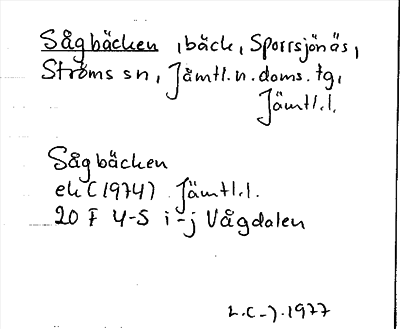 Sågbäcken, bäck, Sporrsjönäs,
Ströms sn, Jämtl. n. doms. tg,
Jämtl. l.
Sågbäcken
ek (1974) Jämtl. l.
20 F 4-5 i-j Vågdalen
L.C-J. 1977